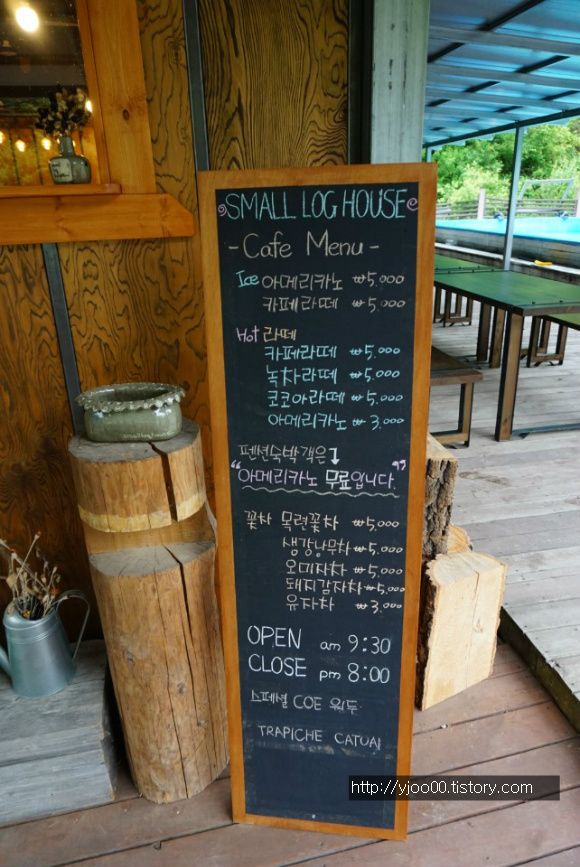 SMALL LOG HOUSE
- Cafe Menu -
Ice 아메리카노 ₩5,000
카페라떼 ₩5,000
Hot 라떼
카페라떼 ₩5,000
녹차라떼 ₩5,000
코코아라떼 ₩5,000
아메리카노 ₩3,000
펜션숙박객은↓
"아메리카노 무료입니다."
꽃차 목련꽃차 ₩5,000
생강나무차 ₩5,000
오미자차 ₩5,000
돼지감자차 ₩5,000
유자차 ₩3,000
OPEN am 9:30
CLOSE pm 8:00
스페셜 COE 원두
TRAPICHE CATUAI
http://yjoo00.tistory.com